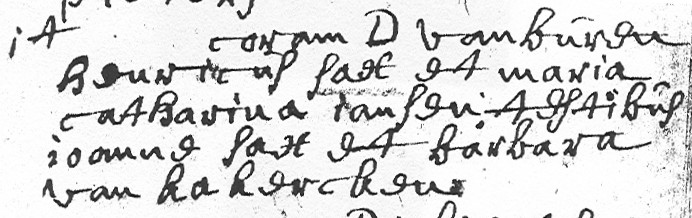 it coram D vanbúren
henricus sadt et maria
catharina iansen testibús
ioanne sadt et bárbara
van kakercken.